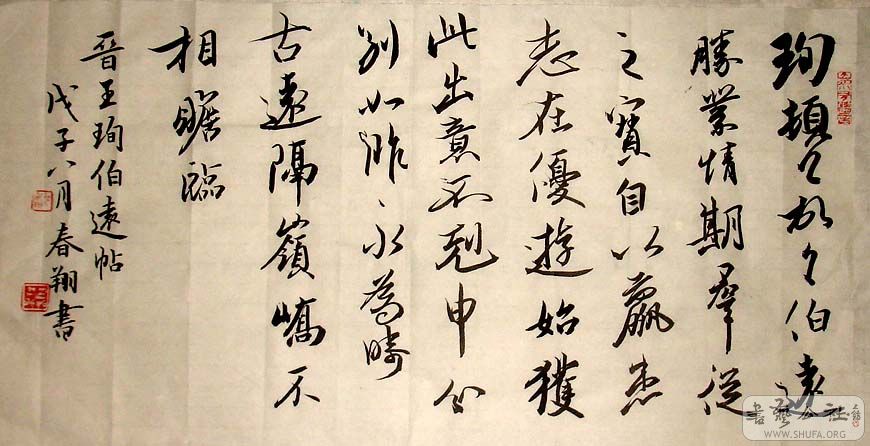 珣頓〻頓〻伯遠
勝業情期羣從
之寶自以羸患
志在優遊始獲
此出意不剋申分
別如昨〻永為疇
古遠隔嶺嶠不
相瞻臨
晉王珣伯遠帖
戊子八月春翔書
書藝公社
WWW.SHUFA.ORG